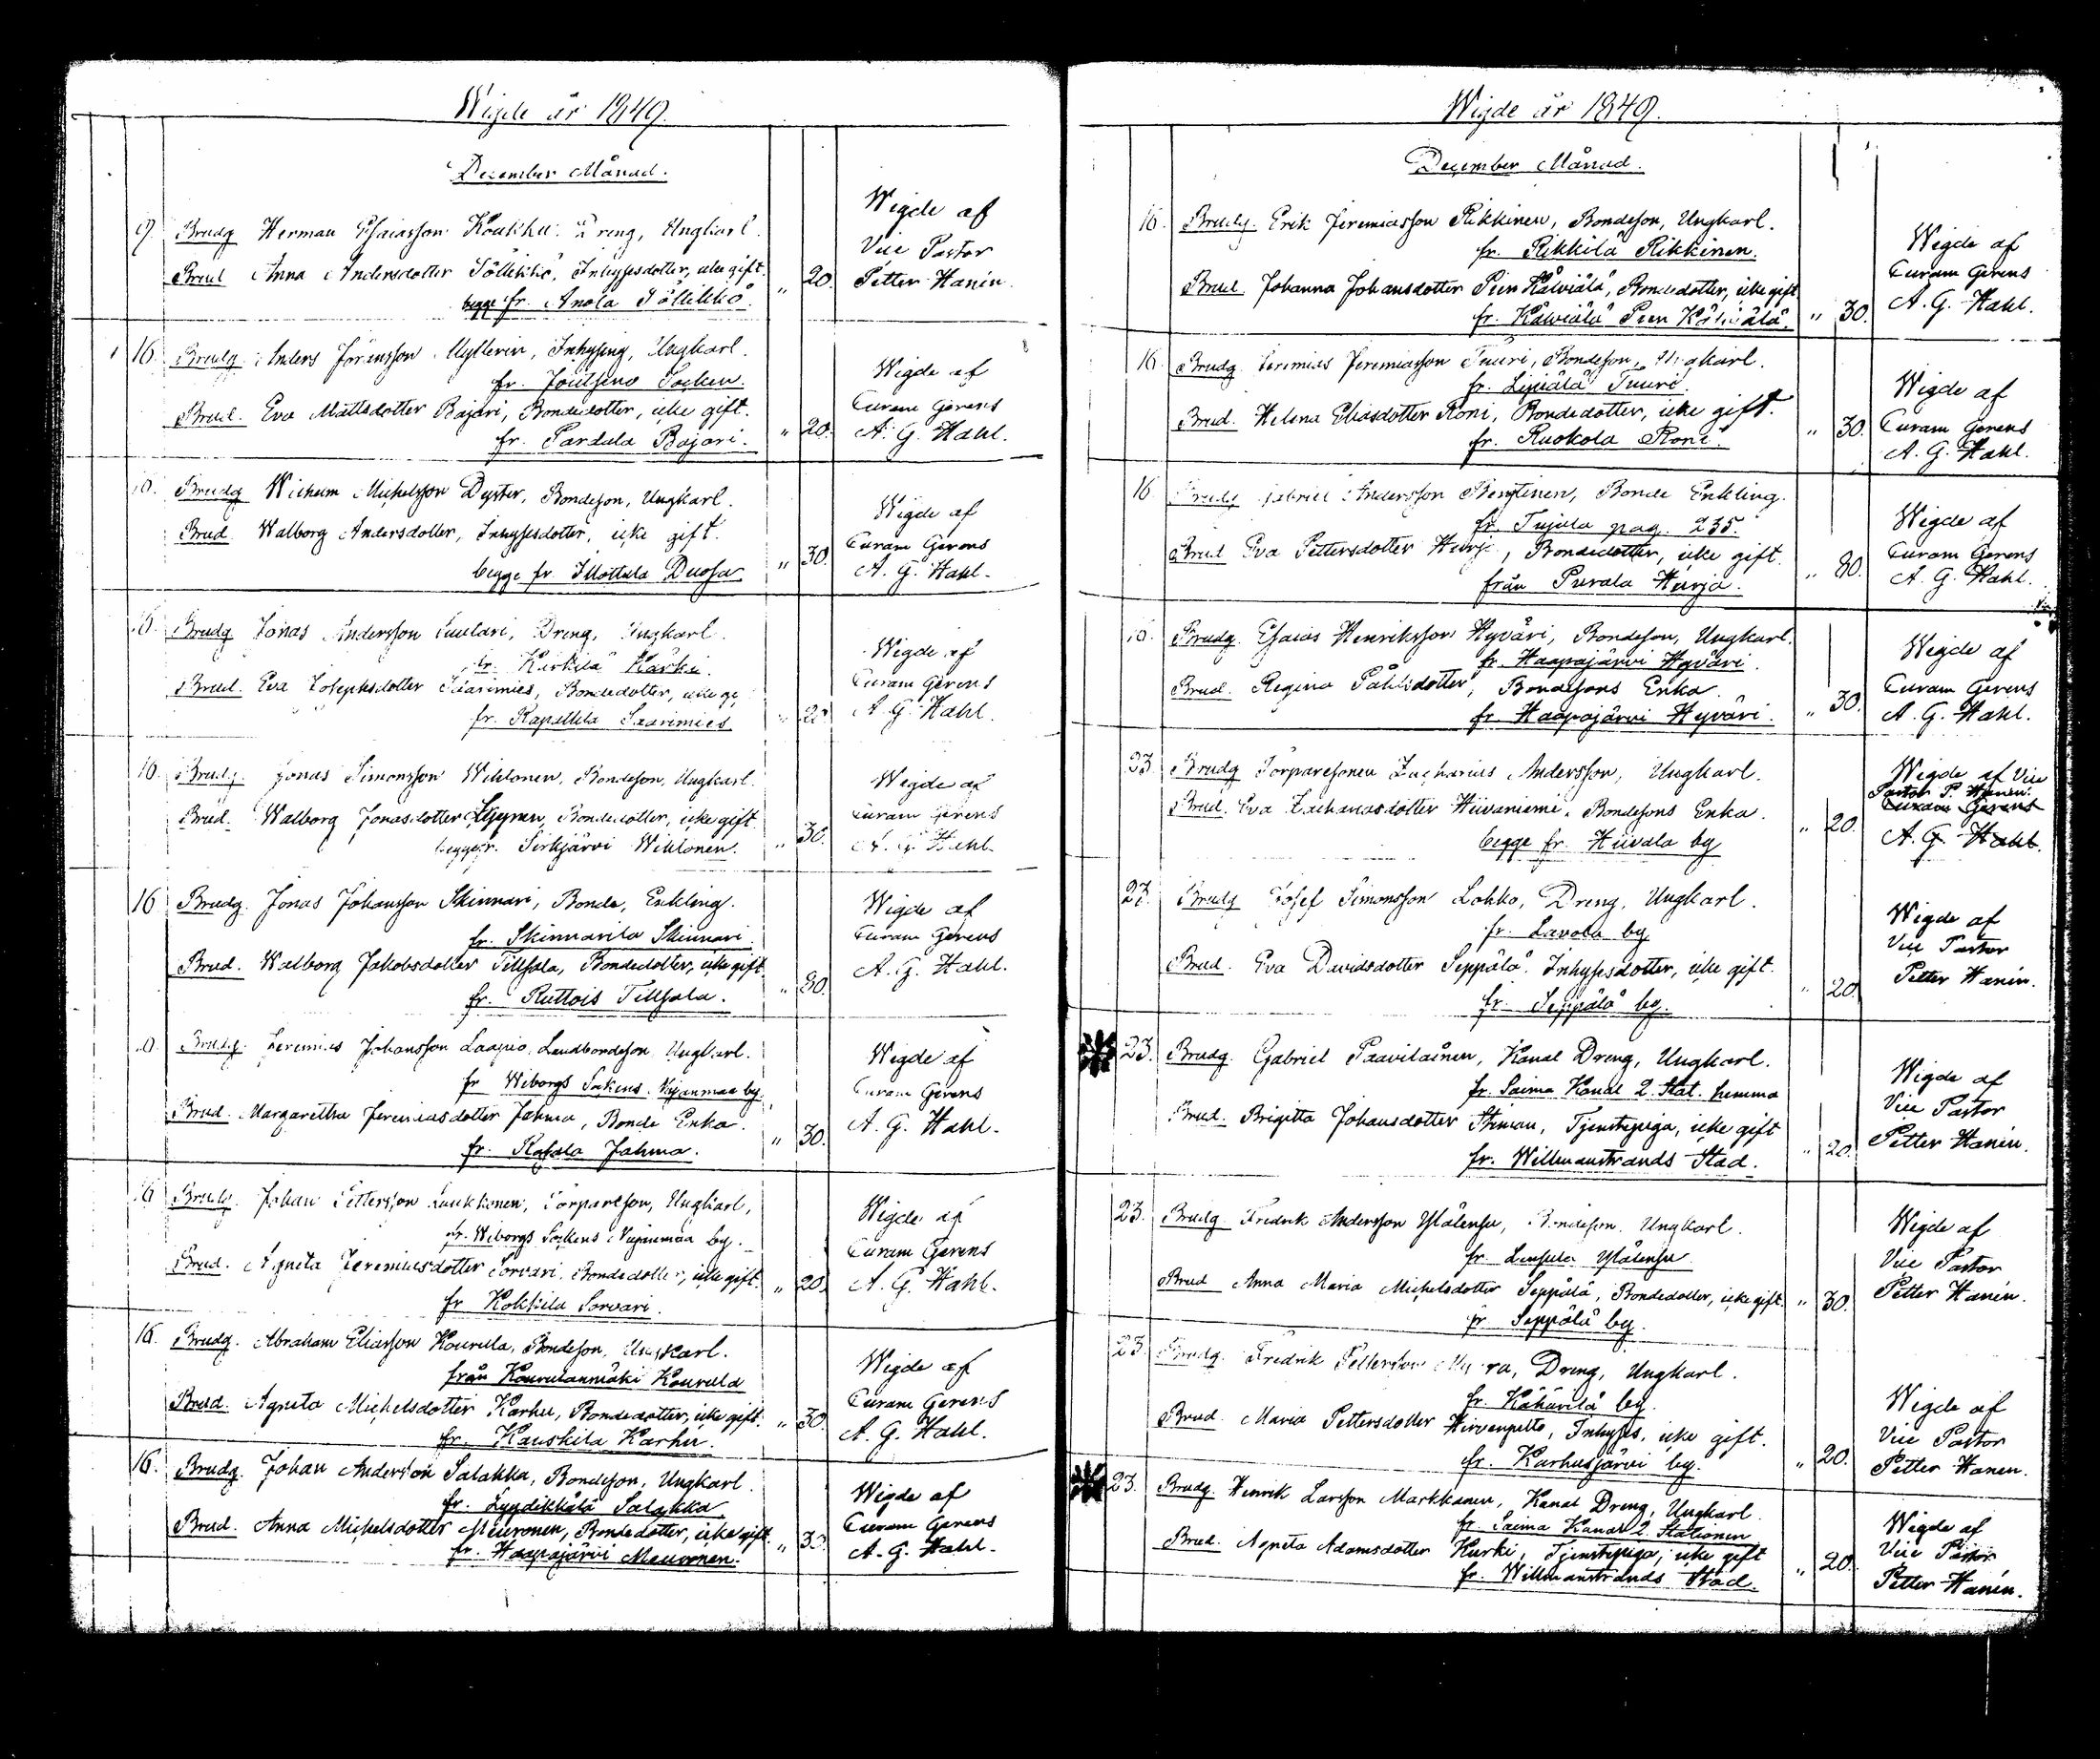 Wigde år 1849.
December Månad.
9 Brudg Herman Esaiasson Koukku. Dreng, Ungkarl.
Brud Anna Andersdotter Söllikkö, Inhysesdotter, icke gift.
begge fr. Anola Söllikkö. " 20.
Wigde af
Vice Pastor
Petter Hanén.
16. Brudg. Anders Jöransson Myllerin, Inhysing, Ungkarl.
fr. Joutseno Socken.
Brud. Eva Mattsdotter Rajari, Bondedotter, icke gift.
fr. Partala Rajari. " 20.
Wigde af
Curam Gerens
A. G. Hahl.
Brudg Michelsson Dyster, Bondeson, Ungkarl.
Brud Walborg Andersdotter, Inhysesdotter, icke gift.
begge fr. Ilottula Duosa. " 30.
Wigde af
Curam Gerens
A. G. Hahl.
Brudg Jonas Andersson Suulari, Dreng, Ungkarl.
fr. Kurkilä Kärki.
Brud. Eva Josephsdotter Saarimies, Bondedotter, icke
fr. Rapattila Saarimies " 20
Wigde af
Curam Gerens
A. G. Hahl.
16. Brudg. Jonas Simonsson Wihtonen, Bondeson, Ungkarl.
Brud. Walborg Jonasdotter Bondedotter, icke gift.
begge fr. Sirkjärvi Wihtonen. " 30.
Wigde af
Curam Gerens
A. G. Hahl
16 Brudg. Jonas Johansson Skinnari, Bonde, Enkling.
fr. Skinnarila Skinnari.
Brud. Walborg Jakobsdotter Tillsala, Bondedotter, icke gift.
fr. Ruttois Tillsala. " 30.
Wigde af
Curam Gerens
A. G. Hahl.
Brudg. Jeremias Johansson Laapio, Landbondeson, Ungkarl.
fr Wiborgs Sokens Nuijanmaa by.
Brud. Margaretha Jeremiasdotter Jahma, Bonde Enka.
fr. Rasala Jahma. " 30.
Wigde af
Curam Gerens
A. G. Hahl.
16 Brudg. Johan Pettersson Laukkonen, Torpareson, Ungkarl,
fr. Wiborgs Sockens Nuijanmaa by.
Brud. Agneta Jeremiasdotter Sorvari, Bondedotter, icke gift.
fr Kokkila Sorvari. " 20.
Wigde af
Curam Gerens
A. G. Hahl.
16. Brudg. Abraham Eliasson Kourula, Bondeson, Ungkarl.
från Kourulanmäki Kourula
Brud. Agneta Michelsdotter Karhu, Bondedotter, icke gift.
fr. Kauskila Karhu. " 30.
Wigde af
Curam Gerens
A. G. Hahl.
16. Brudg. Johan Andersson Salakka, Bondeson, Ungkarl.
fr. Lyydikkälä Salakka
Brud. Anna Michelsdotter Meuronen, Bondedotter, icke gift.
fr. Haapajärvi Meuronen. " 30.
Wigde af
Curam Gerens
A. G. Hahl.
Wigde år 1849.
December Månad.
16. Brudg. Erik Jeremiasson Rikkinen, Bondeson, Ungkarl.
fr. Rikkilä Rikkinen.
Brud. Johanna Johansdotter Pien Kälviälä, Bondedotter, icke gift
fr. Kälviälä Pien Kälviälä. " 30.
Wigde af
Curam Gerens
A. G. Hahl.
16. Brudg. Jeremias Jeremiasson Tuuri, Bondeson, Ungkarl.
fr. Tuuri.
Brud. Helena Eliasdotter Roni, Bondedotter, icke gift.
fr. Ruokola Roni. " 30.
Wigde af
Curam Gerens
A. G. Hahl.
16 Brudg Gabriel Andersson Penttinen, Bonde Enkling.
fr. Tujula pag. 235.
Brud Eva Pettersdotter Hurja, Bondedotter, icke gift.
från Purala Hurja. " 30.
Wigde af
Curam Gerens
A. G. Hahl.
16. Brudg. Esaias Henriksson Hyväri, Bondeson, Ungkarl.
fr. Haapajärvi Hyväri.
Brud. Regina Påhlsdotter, Bondesons Enka.
fr. Haapajärvi Hyväri. " 30.
Wigde af
Curam Gerens
A. G. Hahl.
23. Brudg Torparesonen Zacharias Andersson, Ungkarl.
Brud. Eva Zachariasdotter Hiivaniemi, Bondesons Enka.
begge fr. Hiivala by " 20.
Wigde af Vice
Pastor P. Hanén.
Curam Gerens
A. G. Hahl.
23. Brudg Josef Simonsson Lohko, Dreng, Ungkarl.
fr. Lavola by
Brud. Eva Davidsdotter Seppälä. Inhysesdotter, icke gift.
fr. Seppälä by. " 20.
Wigde af
Vice Pastor
Petter Hanén.
23. Brudg. Gabriel Paavilainen, Kanal Dreng, Ungkarl.
fr. Saima Kanal 2. Stat. hemma
Brud. Brigitta Johansdotter Tjenstepiga, icke gift
fr. Willmanstrands Stad. " 20.
Wigde af
Vice Pastor
Petter Hanén.
23. Brudg Fredrik Andersson Ylälensu, Bondeson. Ungkarl.
fr. Lensula Ylälensu
Brud Anna Maria Michelsdotter Seppälä, Bondedotter, icke gift.
fr Seppälä by. " 30.
Wigde af
Vice Pastor
Petter Hanén.
23. Brudg. Fredrik Pettersson Dreng, Ungkarl.
fr. Kähärilä by.
Brud. Maria Pettersdotter Hirvenpelto, Inhyses, icke gift.
fr. Karhusjärvi by. " 20.
Wigde af
Vice Pastor
Petter Hanén.
23. Brudg. Henrik Larsson Markkanen, Kanal Dreng, Ungkarl.
fr. Saima Kanal 2. Stationen
Brud. Agneta Adamsdotter Kurki, Tjenstepiga, icke gift
fr. Willmanstrands Stad. " 20.
Wigde af
Vice Pastor
Petter Hanén.